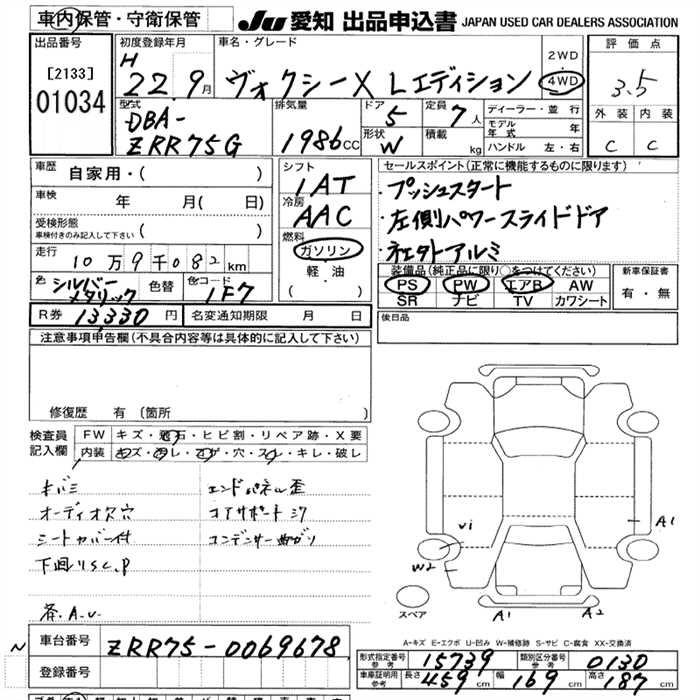 車内保管・守衛保管 JU 愛知 出品申込書 JAPAN USED CAR DEALERS ASSOCIATION
出品番号 初度登録年月 車名・グレード 2WD 評価点
[2133] H 22. 9月 ヴォクシーX Lエディション 4WD 3.5
01034 型式 排気量 ドア 定員 ディーラー・並行 外装 内装
DBA- 5 7人 モデル年式 年
ZRR75G 1986cc 形状 W 積載 kg ハンドル 左・右 C C
車歴 自家用・( ) シフト セールスポイント(正常に機能するものに限ります)
1AT ・プッシュスタート
車検 年 月( 日) 冷房
AAC ・左側パワースライドドア
受検形態
車検付きのみ記入して下さい ( ) 燃料
走行 10万9千082km ガソリン
軽・油
( ) 装備品(純正品に限り○をつけてください) 新車保証書
色 シルバーメタリック 色替 色コード 1F7 PS PW エアB AW 有・無
SR ナビ TV カワシート
R券 13,330円 名変通知期限 月 日 後日品
注意事項申告欄(不具合内容等は具体的に記入して下さい)
修復歴 有 (箇所
検査員 FW キズ・飛石・ヒビ割・リペア跡・X要
記入欄 内装 キズ・汚レ・コゲ・穴・スレ・キレ・破レ
キバミ エンドパネル歪
オーディオス穴 コアサポートミグ
シートカバー付 コンデンサー曲がり
下廻りSC,P
W2 A1
スペア A1 A2
A-キズ E-エクボ U-凹み W-補修跡 S-サビ C-腐食 XX-交換済
N 車台番号 ZRR75-0069678
登録番号 形式指定番号 参考 15739 類別区分番号 参考 0130
車庫証明用 参考 長さ 459cm 幅 169cm 高さ 187cm